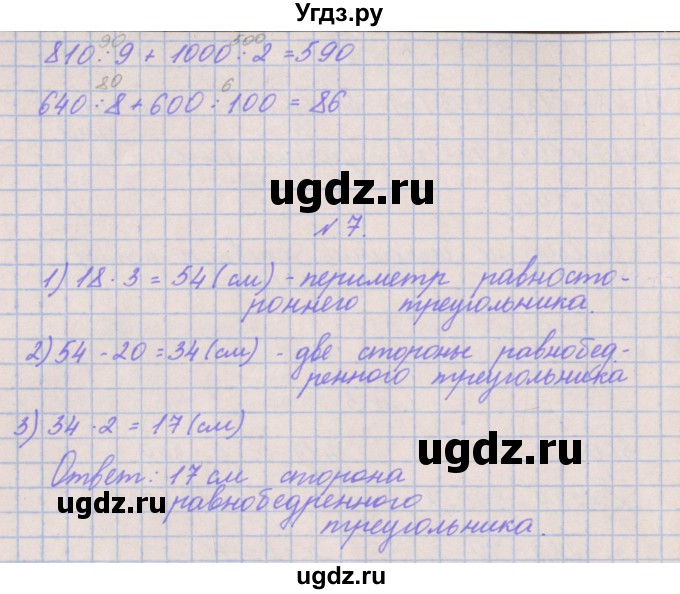 Угдз.ру
90 500
810 : 9 + 1000 : 2 = 590
80 6
640 : 8 + 600 : 100 = 86
ugdz.ru
N 7.
1) 18 · 3 = 54 (см) - периметр равносто-
роннего треугольника.
2) 54 - 20 = 34 (см) - две стороны равнобед-
ренного треугольника
3) 34 · 2 = 17 (см)
ugdz.ru
Ответ: 17 см сторона
ugdz.ru
равнобедренного
треугольника.
ugdz.ru
ugdz.ru